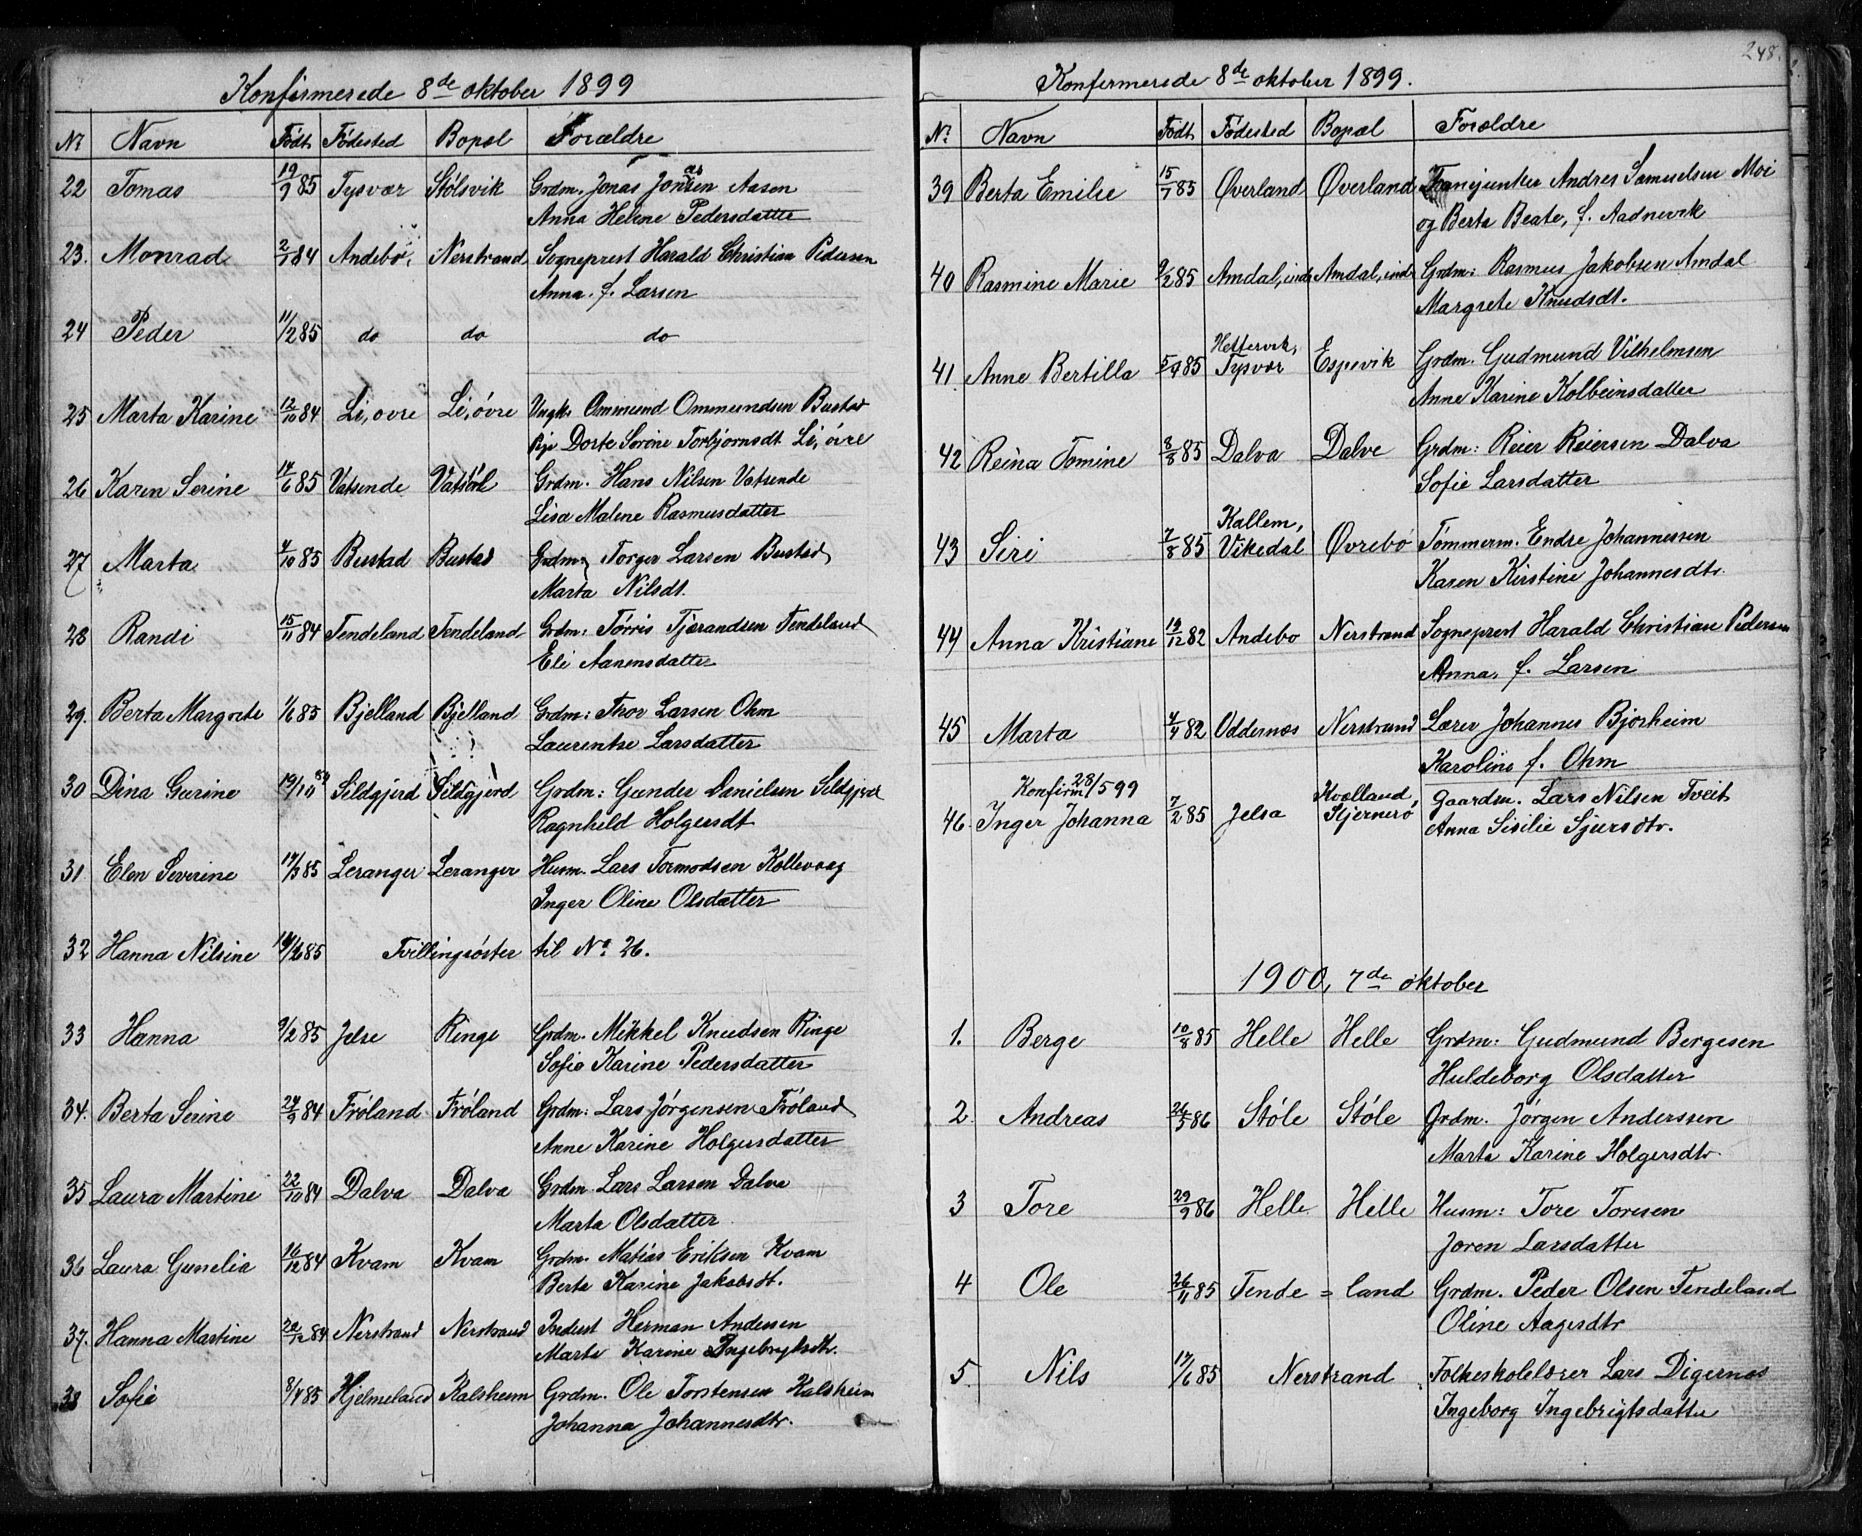 Konfirmerede 8de oktober 1899
Nr. Navn Født Fødested Bopæl Forældre
22 Tomas 19/9 85 Tysvær Stølsvik Grdm. Jonas Jonsen Aasen
Anna Helene Pedersdatter
23. Monrad 2/1 84 Andebo, Nerstrand Sogneprest Harald Christian Pedersen
Anna. f. Larsen
24 Peder 11/2 85 do do do
25 Marta Karine 12/10 84 Li, øvre Li, øvre Ungk. Ommund Ommundsen Bustad
Pige Dorte Sørine Torbjørnsdt. Li, øvre
26 Karen Serine 14/6 85 Vatsende Grdm. Hans Nilsen Vatsende
Lisa Malene Rasmusdatter
27 Marta 4/10 85 Bustad Bustad Grdm. Torger Larsen Bustad
Marta Nilsdt.
28 Randi 15/11 84 Tendeland Tendeland Grdm: Tørris Tjerandsen Tendeland
Eli Aanensdatter
29. Berta Margrete 1/6 85 Bjelland Bjelland Grdm: Thor Larsen Ohm
Laurentse Larsdatter
30 Dina Gurine 19/10 84 Sildgjerd Sildgjerd Grdm: Gunder Danielsen Sildgjerd
Ragnhild Holgersdt
31 Elen Severine 17/3 85 Leranger Leranger Husm. Lars Tormodsen Kollevaag
Inger Oline Olsdatter
32 Hanna Nilsine 14/6 85 Tvillingsøster til No. 26.
33 Hanna 9/2 85 Jelse Ringe Grdm. Mikkel Knudsen Ringe
Sofie Karine Pedersdatter
34. Berta Serine 24/9 84 Frøland Frøland Grdm: Lars Jørgensen Frøland
Anne Karine Holgersdatter
35 Laura Martine 22/10 84 Dalva Dalva Grdm. Lars Larsen Dalva
Marta Olsdatter
36 Laura Gunelia 16/12 84 Kvam Kvam Grdm. Matias Eriksen Kvam
Berta Karine Jakobsdt.
37. Hanna Martine 20/12 84 Nerstrand Nerstrand Inderst Herman Andersen
Marta Karine Ingebrigtsdtr.
38 Sofie 8/4 85 Hjelmeland Kalsheim Grdm. Ole Torstensen Kalsheim
Johanna Johannesdtr.
248.
Konfermerede 8de oktober 1899.
Nr. Navn Født Fødested Bopæl Forældre
39 Berta Emilie 15/7 85 Øverland Øverland Andres Samuelsen Moi
og Berta Beate, f. Aadnevik
40 Rasmine Marie 9/2 85 Amdal, indr Amdal, indr Grdm: Rasmus Jakobsen Amdal
Margrete Knudsdt.
41. Anne Bertilla 5/9 85 Hettervik, Tysvær Espevik Grdm. Gudmund Vilhelmsen
Anne Karine Kolbeinsdatter
42 Reina Tomine 8/8 85 Dalva Dalve Grdm: Reier Reiersen Dalva
Sofie Larsdatter
43 Siri 7/8 85 Kallem, Vikedal Øvrebø Tømmerm. Endre Johannessen
Karen Kirstine Johannesdtr.
44 Anna Kristiane 19/12 82 Andebo Nerstrand Sogneprest Harald Christian Pedersen
Anna, f. Larsen
45 Marta 4/4 82 Oddernæs Nerstrand Lærer Johannes Bjørheim
Karoline f. Ohm
Konfirm 28/5 99
46. Inger Johanna 7/2 85 Jelsa Kvalland, Stjernerø Gaardm. Lars Nilsen Tveit
Anna Sisilie Sjursdtr.
1900, 7de oktober
1. Berge 10/8 85 Helle Helle Grdm: Gudmund Bergesen
Huldeborg Olsdatter
2 Andreas 26/5 86 Støle Støle Grdm. Jørgen Anderssen
Marta Karine Holgersdtr
3 Tore 29/9 86 Helle Helle Husm: Tore Toresen
Joren Larsdatter
4 Ole 26/11 85 Tende = land Grdm. Peder Olsen Tendeland
Oline Aagesdtr
5 Nils 17/6 85 Nerstrand Folkeskolelærer Lars Digernæs
Ingeborg Ingebrigtsdatter